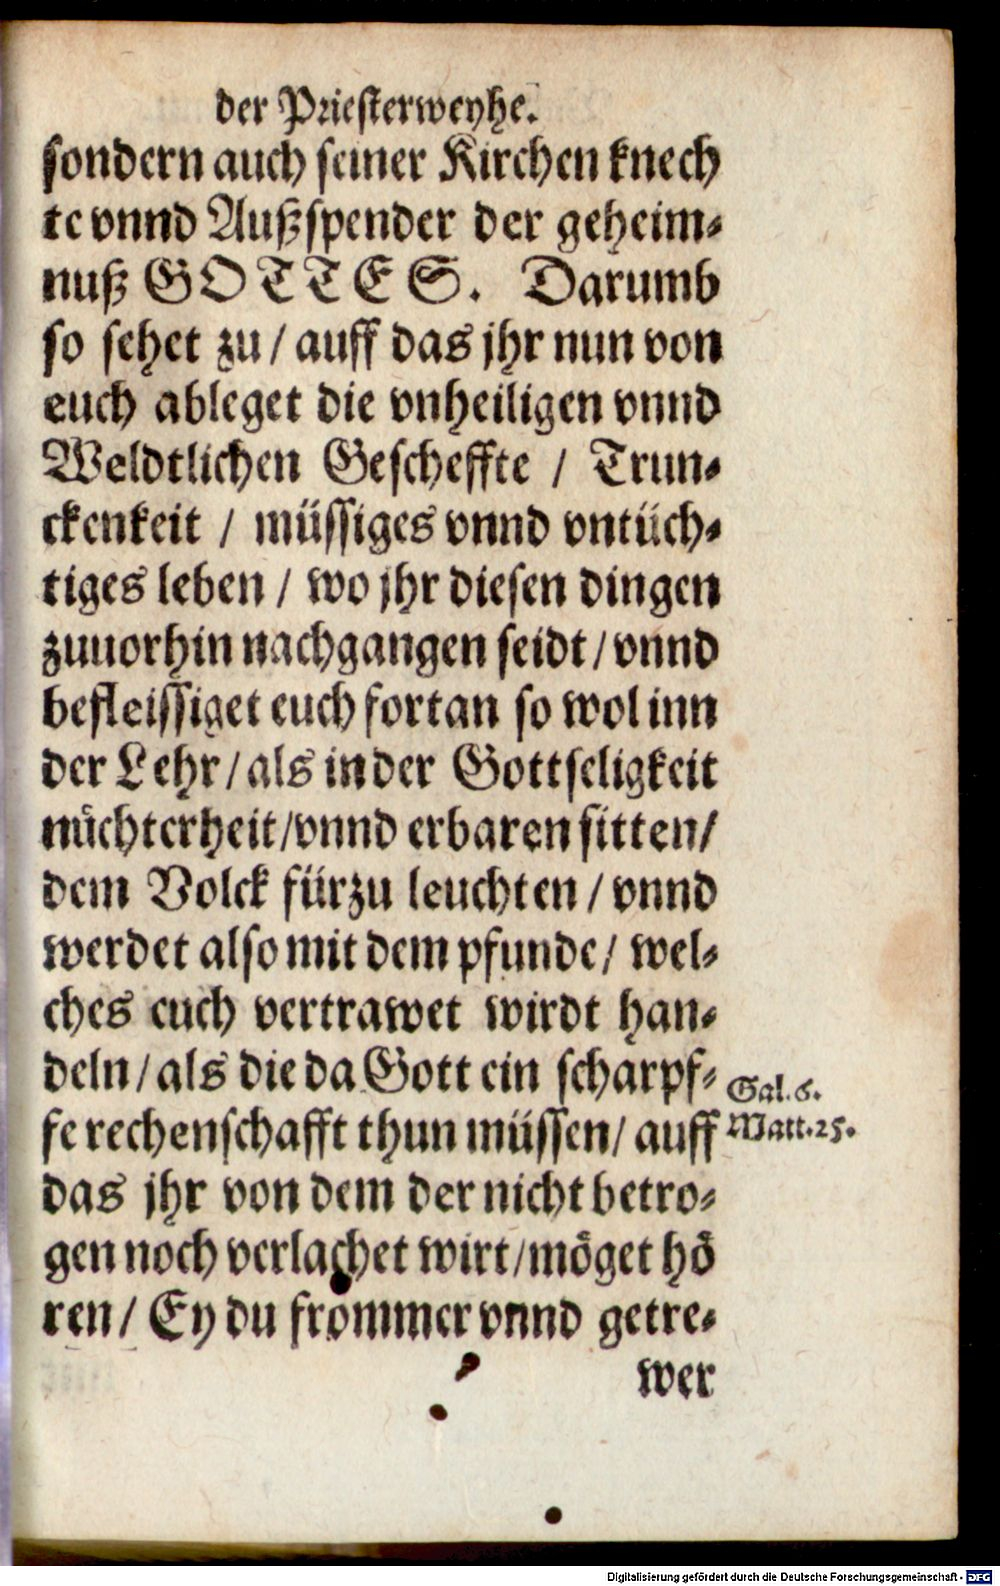 der Priesterweyhe.
sondern auch seiner Kirchen knech
te vnnd Außspender der geheim-
nuß GOTTES. Darumb
so sehet zu / auff das jhr nun von
euch ableget die vnheiligen vnnd
Weldtlichen Gescheffte / Trun-
ckenkeit / müssiges vnnd vntüch-
tiges leben / wo jhr diesen dingen
zuuorhin nachgangen seidt / vnnd
befleissiget euch fortan so wol inn
der Lehr / als in der Gottseligkeit
nüchterheit / vnnd erbaren sitten /
dem Volck fürzu leuchten / vnnd
werdet also mit dem pfunde / wel-
ches euch vertrawet wirdt han-
deln / als die da Gott ein scharpf-
Gal. 6.
fe rechenschafft thun müssen / auff
Matt. 25.
das jhr von dem der nicht betro-
gen noch verlachet wirt / möget hö
ren / Ey du frommer vnnd getre-
wer
Digitalisierung gefördert durch die Deutsche Forschungsgemeinschaft - DFG